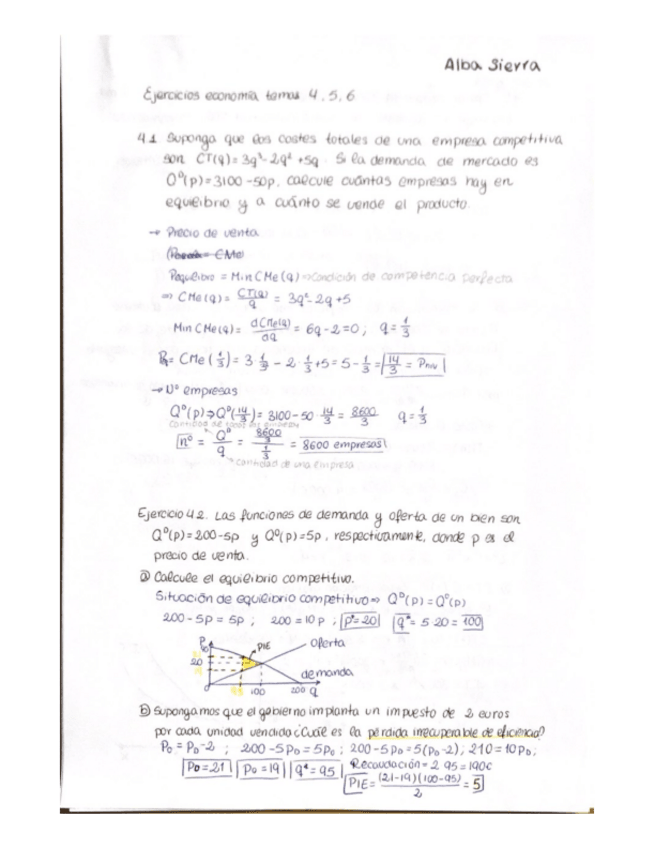 Alba Sierra
Ejercicios economía temas 4, 5, 6
4.1 Suponga que los costes totales de una empresa competitiva
son CT(q) = 3q³ - 2q² + 5q. Si la demanda de mercado es
Q⁰(p) = 3100 - 50p, calcule cuántas empresas hay en
equilibrio y a cuánto se vende el producto.
→ Precio de venta
Pequilibrio = Min CMe(q) → Condición de competencia perfecta
⇒ CMe(q) = CT(q)/q = 3q² - 2q + 5
Min CMe(q) = dCMe(q)/dq = 6q - 2 = 0 ; q = 1/3
CMe(1/3) = 3 1/9 - 2 · 1/3 + 5 = 5 - 1/3 = 14/3 =
→ Nº empresas
Q⁰(p) ⇒ Q⁰(14/3) = 3100 - 50 14/3 = 8600/3 q = 1/3
Cantidad de
nº = Q⁰/q = 8600/3 / 1/3 = 8600 empresas
cantidad de una empresa
Ejercicio 4.2. Las funciones de demanda y oferta de un bien son
Qᴰ(p) = 200 - 5p y Q⁰(p) = 5p, respectivamente, donde p es el
precio de venta.
a) Calcule el equilibrio competitivo.
Situación de equilibrio competitivo ⇒ Qᴰ(p) = Q⁰(p)
200 - 5p = 5p ; 200 = 10p ; p* = 20 q* = 5·20 = 100
PIE
oferta
20
demanda
95 100 200 q
b) Supongamos que el gobierno implanta un impuesto de 2 euros
por cada unidad vendida ¿Cuál es la pérdida irrecuperable de eficiencia?
200 - 5p₀ = 5(p₀ - 2) ; 210 = 10p₀ ;
Recaudación = 2·95 = 190€
P₀ = 21 P₀ = 19 q* = 95
PIE = (21-19)(100-95)/2 = 5